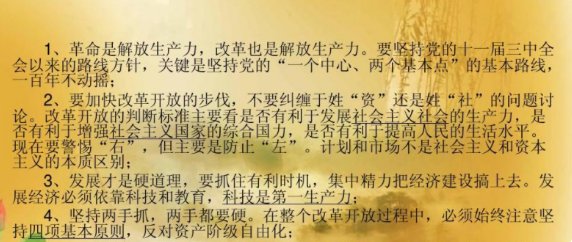 1、革命是解放生产力，改革也是解放生产力。要坚持党的十一届三中全
会以来的路线方针，关键是坚持党的“一个中心、两个基本点”的基本路线，
一百年不动摇；
2、要加快改革开放的步伐，不要纠缠于姓“资”还是姓“社”的问题讨
论。改革开放的判断标准主要看是否有利于发展社会主义社会的生产力，是
否有利于增强社会主义国家的综合国力，是否有利于提高人民的生活水平。
现在要警惕“右”，但主要是防止“左”。计划和市场不是社会主义和资本
主义的本质区别；
3、发展才是硬道理，要抓住有利时机，集中精力把经济建设搞上去。发
展经济必须依靠科技和教育，科技是第一生产力；
4、坚持两手抓，两手都要硬。在整个改革开放过程中，必须始终注意坚
持四项基本原则，反对资产阶级自由化；